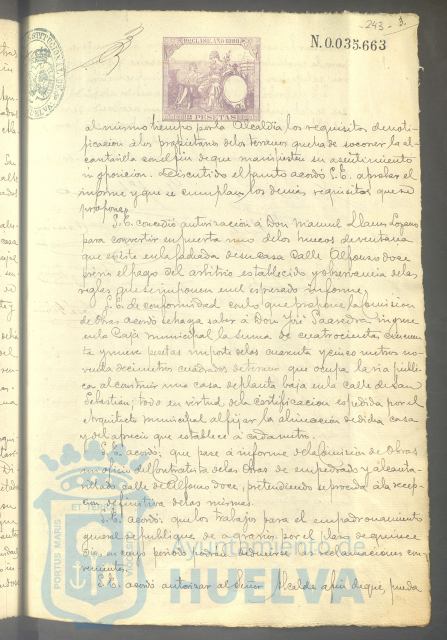 243 - 3.
N. 0.035.663
10.ª CLASE. AÑO 1900.
2 PESETAS
al mismo tiempo por la Alcaldía los requisitos de noti-
ficacion á los propietarios de los terrenos que ha de socorrer la al-
cantarilla con el fin de que manifiesten su asentimiento
ú oposicion. Discutido el punto acordó S.E. aprobar el
informe y que se cumplan los demás requisitos que se
propone.
S.E. concedió autorizacion á Don Manuel Llanes Lozano
para convertir en puerta uno de los huecos de ventana
que existe en la fachada de su casa Calle Alfonso doce
prévio el pago del arbitrio establecido y observancia de las
reglas que se imponen en el expresado informe.
S.E. de conformidad con lo que propone la Comision
de Obras acordó se haga saber á Don José Saavedra ingrese
en la Caja municipal la suma de cuatrocientas cincuen-
ta y nueve pesetas importe de los cuarenta y cinco metros no-
venta decimetros cuadrados de terreno que ocupa la via públi-
ca al construir una casa de planta baja en la calle de San
Sebastián; todo en virtud de la certificacion expedida por el
Arquitecto municipal al fijar la alineacion de dicha casa
y del aprecio que establece á cada metro.
S.E. acordó: que pase á informe de la Comision de Obras
un oficio del contratista de las Obras de empedrado y alcanta-
rillado calle de Alfonso doce, pretendiendo se proceda á la recep-
cion definitiva de las mismas.
S.E. acordó: que los trabajos para el empadronamiento
general se publique de agravios por el plazo de quince
dias, en cuyo periodo podrán aducirse las reclamaciones con-
venientes.
S.E. acordó autorizar al Señor Alcalde á fin de que, pueda
PORTUS MARIS
Ayuntamiento de
HUELVA